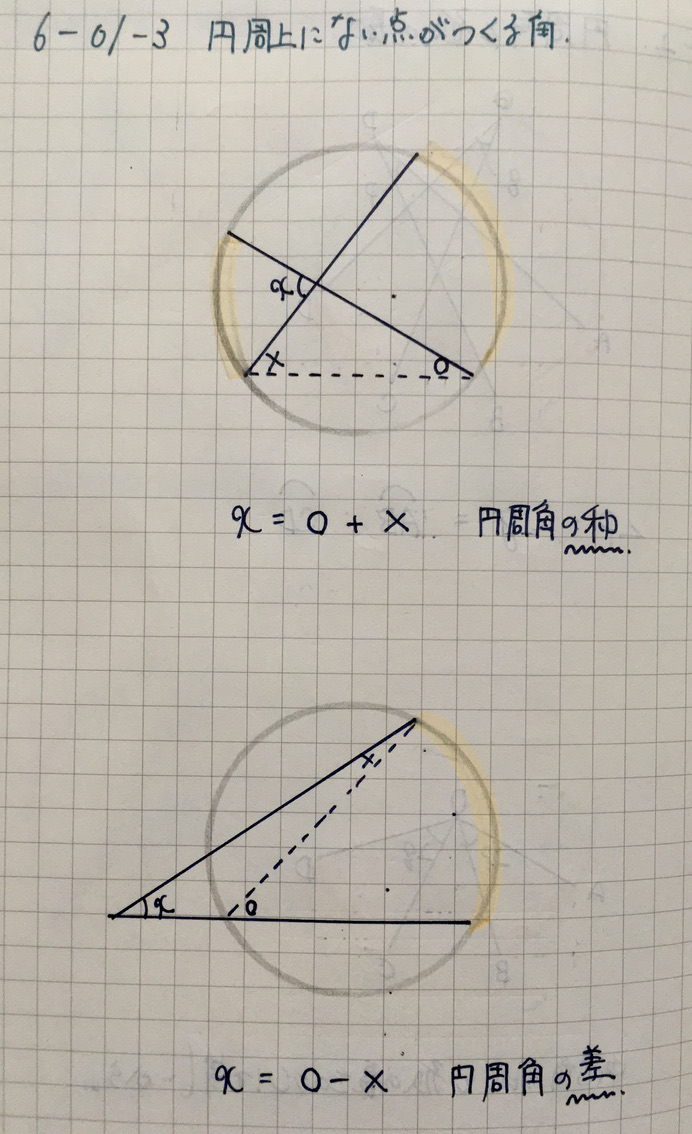 6-01-3 円周上にない点がつくる角.
x
× ○
x = ○ + × 円周角の和
×
x ○
x = ○ - × 円周角の差